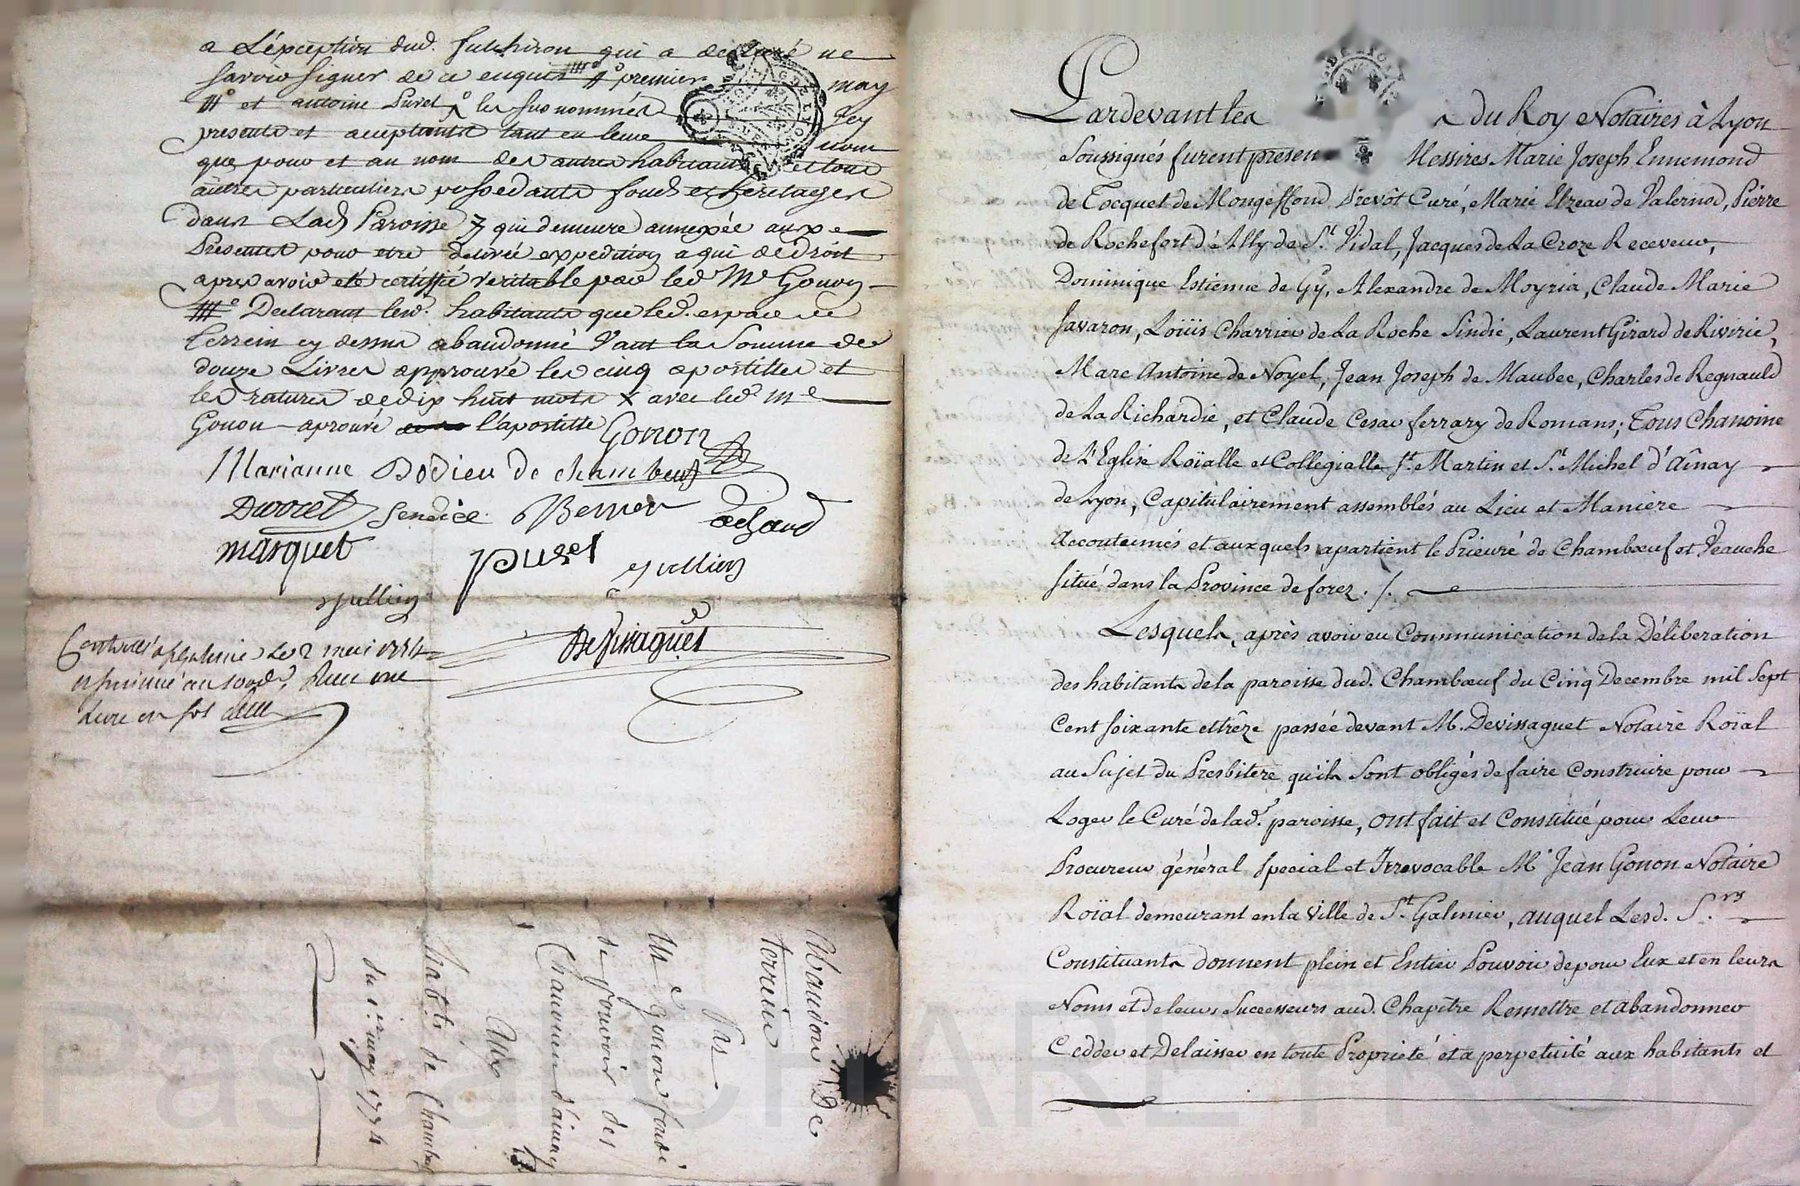 a L'éxception dud. futchiron qui a declaré ne
savoir signer de ce enquis premier may
et antoine Puret les sus nommés icy
presents et acceptants tant en leurs nom
que pour et au nom des autres habitants et tous
autres particuliers possedants fonds et heritages
dans Lad. Paroisse qui demeure annexée aux
Presentes pour etre delivré expedition a qui de droit
apres avoir eté certiffié veritable par led. Me Gonon
Declarant lesd. habitants que led. espace de
terrein cy dessus abandonné vaut la somme de
douze Livres approuvé les cinq apostilles et
les ratures de dix huit mots avec led. Me
Gonon aprouvé l'apostille Gonon
Marianne Dodieu de chambeuf
Duvoret sendice Bernier achard
marquet puret jullien
jullien
DeVissaguet
Controllé a St Galmier Le 2 mai 1774
Abandon De
terrein
Par
Me gonon fondé
de pouvoir des
Chanoines d'ainay
Aux
habts de Chambeuf
du 1er may 1774
Pardevant les du Roy Notaires à Lyon
Soussignés furent presen Messires Marie Joseph Ennemond
de Tocquet de Mongeffond, Prevôt Curé, Marie Elzear de Valernod, Pierre
de Rochefort d'Ally de St. Vidal, Jacques de La Croze Receveur,
Dominique Estienne de Gy, Alexandre de Moyria, Claude Marie
Savaron, Loüis Charrier de La Roche Sindic, Laurent Girard de Rivirie,
Marc Antoine de Noyel, Jean Joseph de Maubec, Charles de Regnauld
de La Richardie, et Claude Cesar ferrary de Romans; Tous Chanoine
de L'Eglise Roïalle et Collegialle St. Martin et St. Michel d'Aînay
de Lyon, Capitulairement assemblés au Lieu et Maniere
Accoutumés et auxquels apartient le Prieuré de Chambœuf et Veauche
situé dans la Province de forez ./.
Lesquels, après avoir eu Communication de la Déliberation
des habitants de la paroisse dud. Chambœuf du Cinq Decembre mil Sept
Cent soixante et trêze passée devant M. Devissaguet Notaire Roïal
au Sujet du Presbitere qu'ils sont obligés de faire Construire pour
Loger le Curé de lad. paroisse, ont fait et Constitué pour Leur
Procureur général Special et Irrevocable Me. Jean Gonon Notaire
Roïal demeurant en la Ville de St. Galmier, auquel Lesd. Srs.
Constituants donnent plein et Entier Pouvoir de pour Eux et en leurs
Noms et de leurs Successeurs aud. Chapître Remettre et abandonner
Cedder et Delaisser en toute Proprieté et a perpetuité aux habitants et
Pascal CHAREYRON